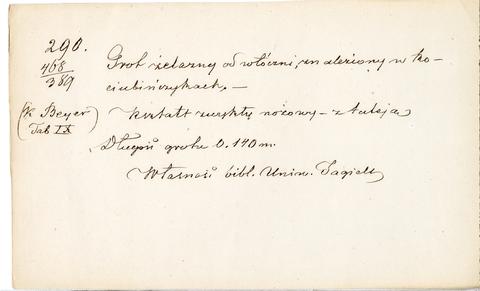 290.
408
389
Grot żelazny od włóczni, znaleziony w Ko-
ciubińczykach. —
(K Beyer
Tab IX)
Kształt zwykły nożowy — z tuleją
Długość grotu 0.140 m.
Własność bibl. Uniw. Jagiell